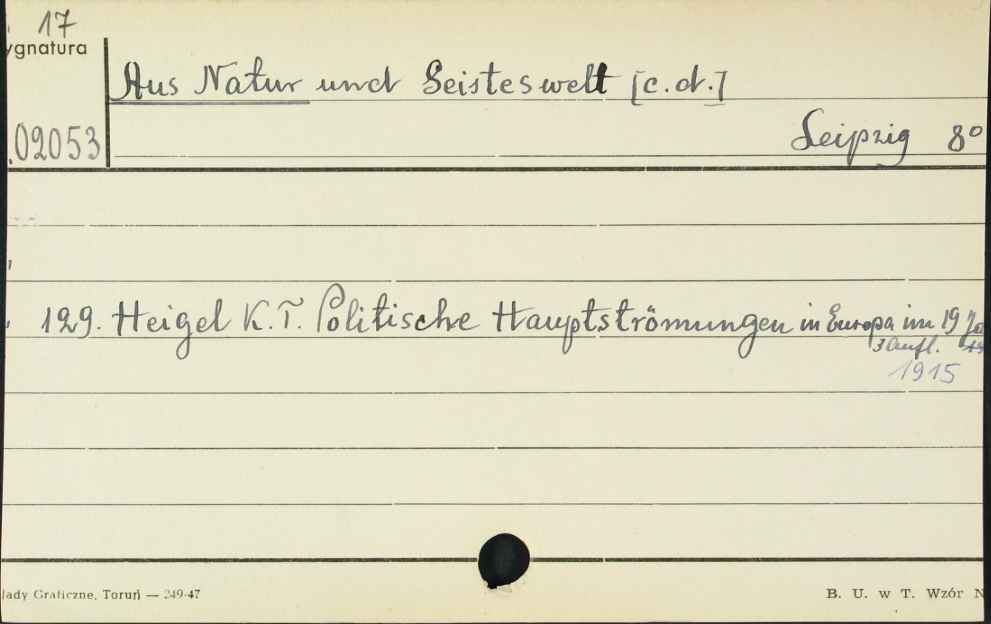 17
ygnatura
Aus Natur und Geisteswelt [c.d.]
02053
Leipzig 8°
129. Heigel K. T. Politische Hauptströmungen in Europa im 19
3 Aufl.
1915
łady Graficzne, Toruń — 249-47
B. U. w T. Wzór N